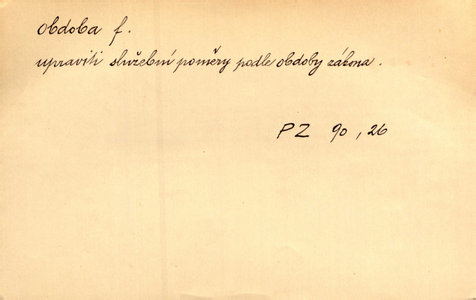 obdoba f.
upraviti služební poměry podle obdoby zákona.
PZ 90, 26